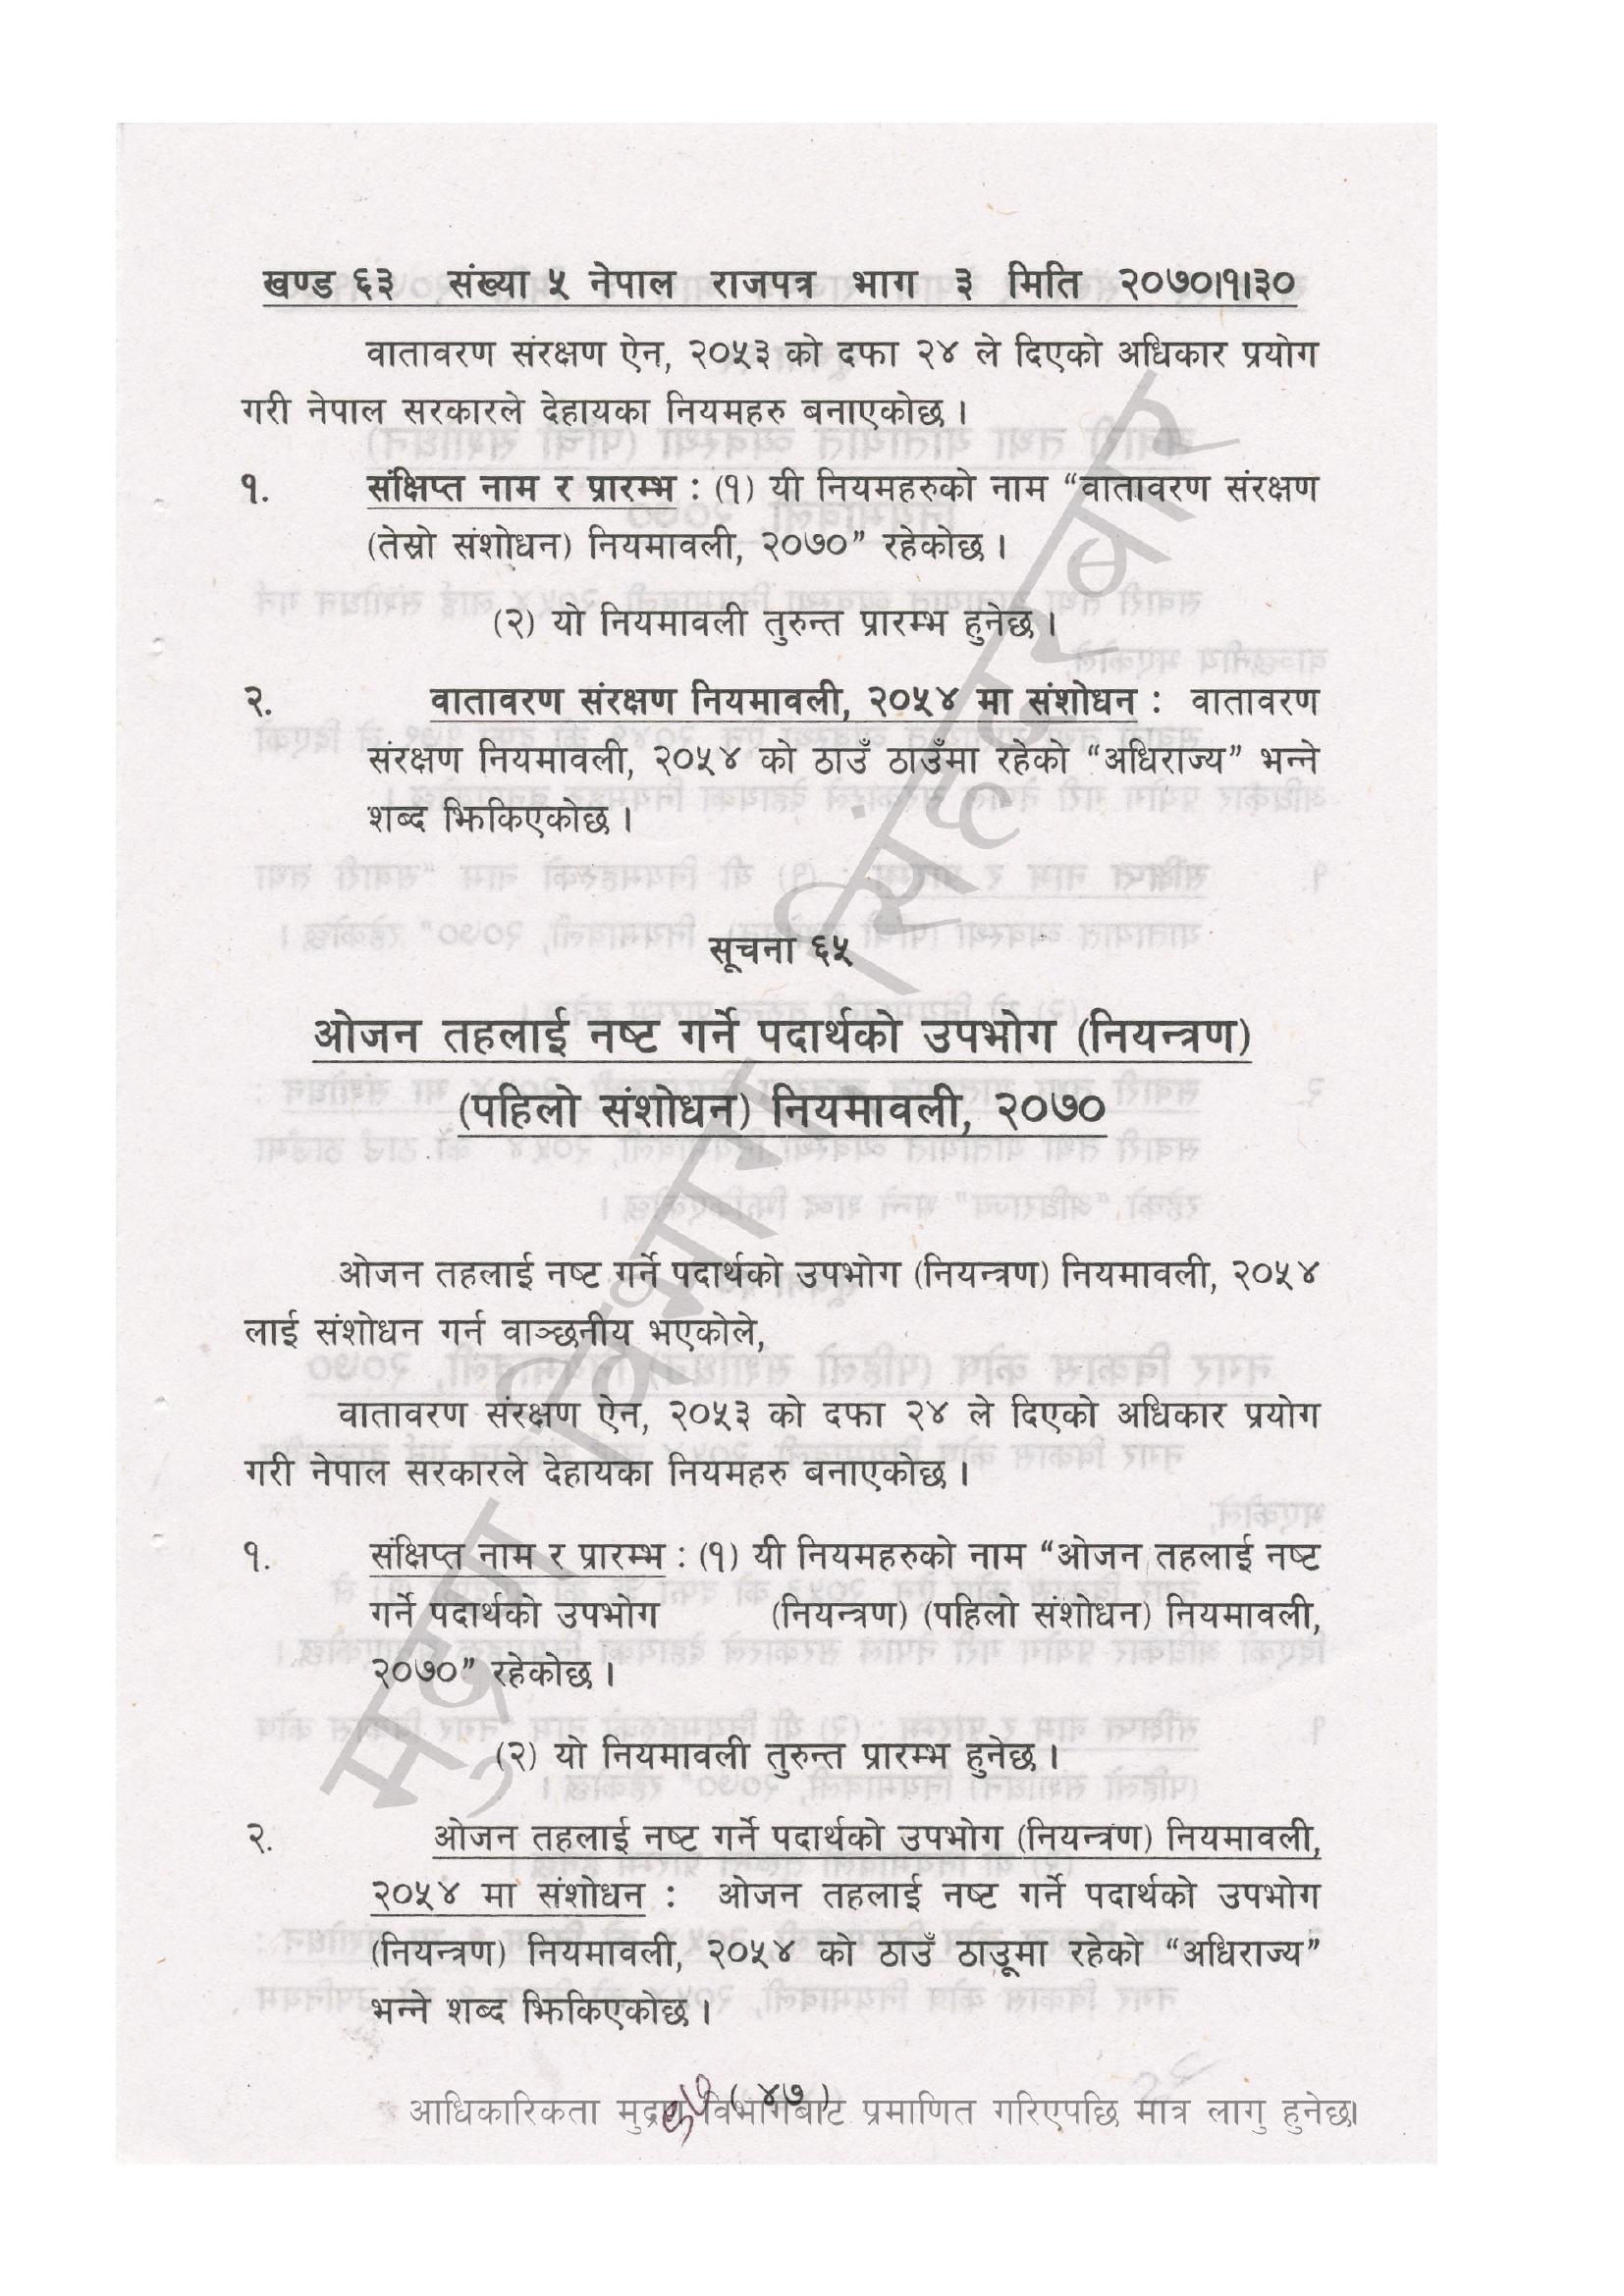 खण्ड ६३ संख्या ५ नेपाल राजपत्र भाग ३ मिति २०७०।१।३०
वातावरण संरक्षण ऐन, २०५३ को दफा २४ ले दिएको अधिकार प्रयोग
गरी नेपाल सरकारले देहायका नियमहरु बनाएकोछ ।
१. संक्षिप्त नाम र प्रारम्भ : (१) यी नियमहरुको नाम “वातावरण संरक्षण
(तेस्रो संशोधन) नियमावली, २०७०” रहेकोछ ।
(२) यो नियमावली तुरुन्त प्रारम्भ हुनेछ ।
२. वातावरण संरक्षण नियमावली, २०५४ मा संशोधन : वातावरण
संरक्षण नियमावली, २०५४ को ठाउँ ठाउँमा रहेको “अधिराज्य” भन्ने
शब्द झिकिएकोछ ।
सूचना ६५
ओजन तहलाई नष्ट गर्ने पदार्थको उपभोग (नियन्त्रण)
(पहिलो संशोधन) नियमावली, २०७०
ओजन तहलाई नष्ट गर्ने पदार्थको उपभोग (नियन्त्रण) नियमावली, २०५४
लाई संशोधन गर्न वाञ्छनीय भएकोले,
वातावरण संरक्षण ऐन, २०५३ को दफा २४ ले दिएको अधिकार प्रयोग
गरी नेपाल सरकारले देहायका नियमहरु बनाएकोछ ।
१. संक्षिप्त नाम र प्रारम्भ : (१) यी नियमहरुको नाम “ओजन तहलाई नष्ट
गर्ने पदार्थको उपभोग (नियन्त्रण) (पहिलो संशोधन) नियमावली,
२०७०” रहेकोछ ।
(२) यो नियमावली तुरुन्त प्रारम्भ हुनेछ ।
२. ओजन तहलाई नष्ट गर्ने पदार्थको उपभोग (नियन्त्रण) नियमावली,
२०५४ मा संशोधन : ओजन तहलाई नष्ट गर्ने पदार्थको उपभोग
(नियन्त्रण) नियमावली, २०५४ को ठाउँ ठाउूमा रहेको “अधिराज्य”
भन्ने शब्द झिकिएकोछ ।
( ४७ )
आधिकारिकता मुद्रण विभागबाट प्रमाणित गरिएपछि मात्र लागु हुनेछ।
मुद्रण विभाग सिंहदरबार